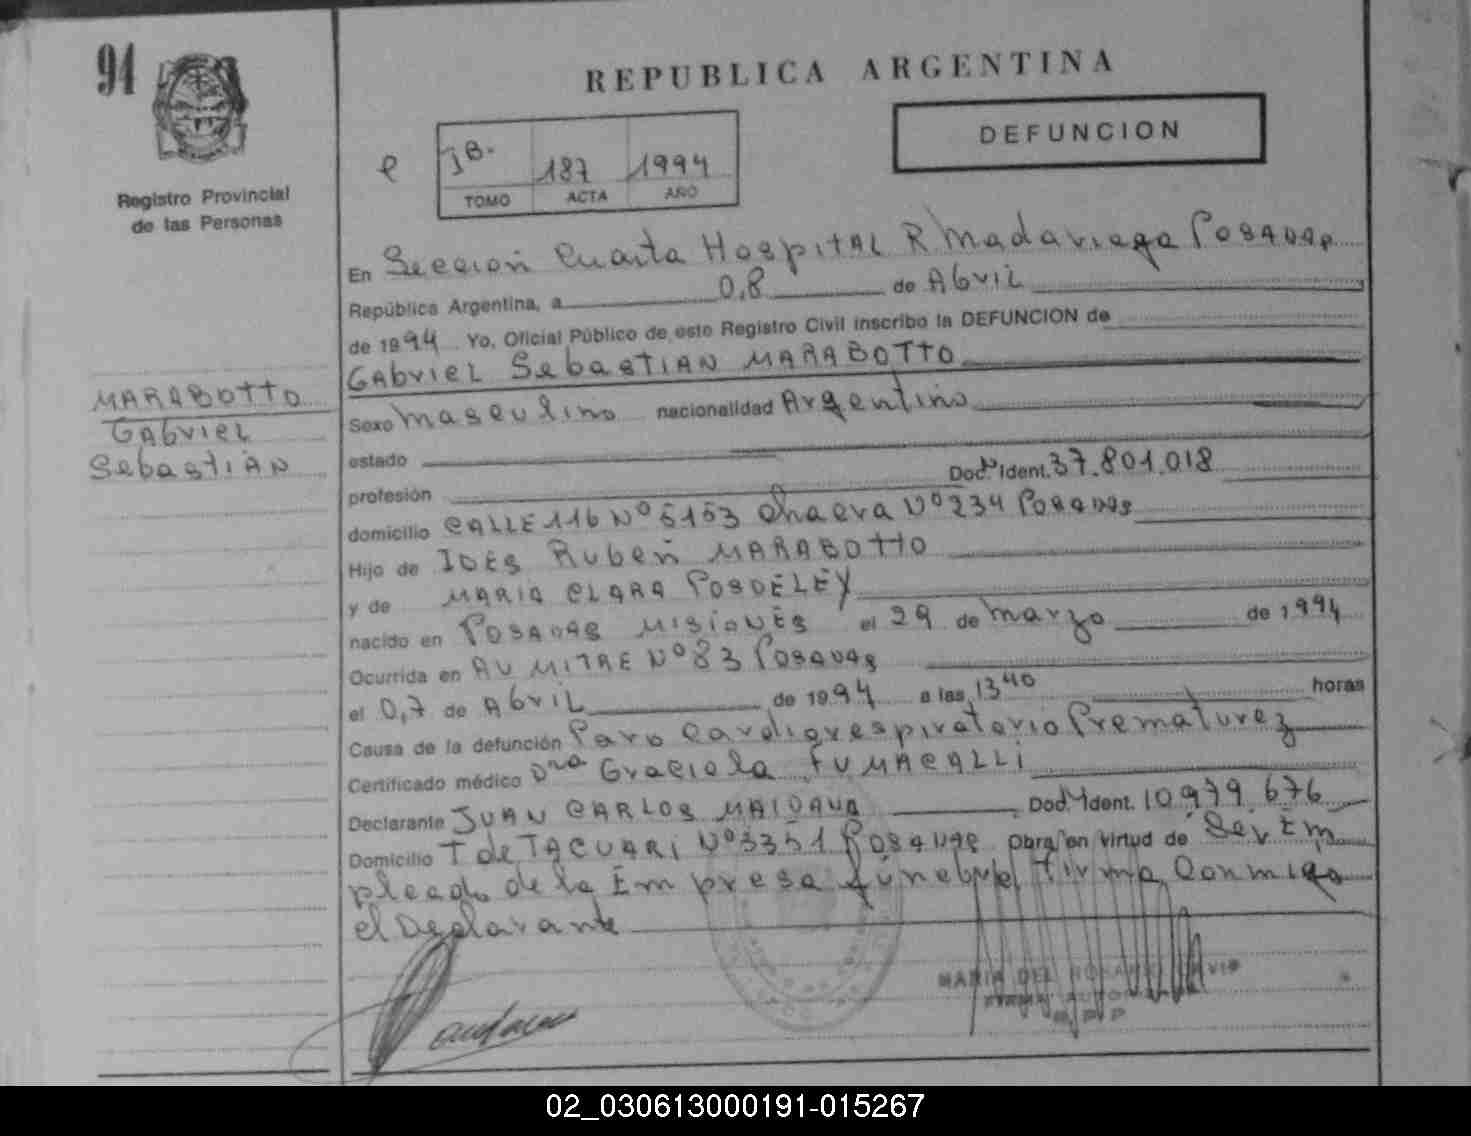 94
REPUBLICA ARGENTINA
DEFUNCION
1B. 187 1994
TOMO ACTA AÑO
Registro Provincial
de las Personas
En Seccion Cuarta Hospital R Madariaga Posadas
República Argentina, a 0,8 de Abril
de 1994 Yo, Oficial Público de este Registro Civil inscribo la DEFUNCION de
Gabriel Sebastian MARABOTTO
MARABOTTO
Gabriel
Sebastian
Sexo masculino nacionalidad Argentino
estado
profesión Doc. Ident. 37.801.018
domicilio CALLE 116 Nº 5153 Chacra Nº 234 Posadas
Hijo de Ruben MARABOTTO
y de MARIA CLARA POSDELEY
nacido en POSADAS MISIONES el 29 de marzo de 1994
Ocurrida en AV MITRE Nº 83 Posadas
el 0,7 de Abril de 1994 a las 13 40 horas
Causa de la defunción Paro Cardiorespiratorio Prematurez
Certificado médico Dra Graciela FUMAGALLI
Declarante JUAN CARLOS MAIDANA Doc. Ident. 10.979.676
Domicilio T de TACUARI Nº 3351 Posadas Obra en virtud de Ser Em
pleado de la Empresa fúnebre firma Conmigo
el Declarante
MARIA DEL
02_030613000191-015267